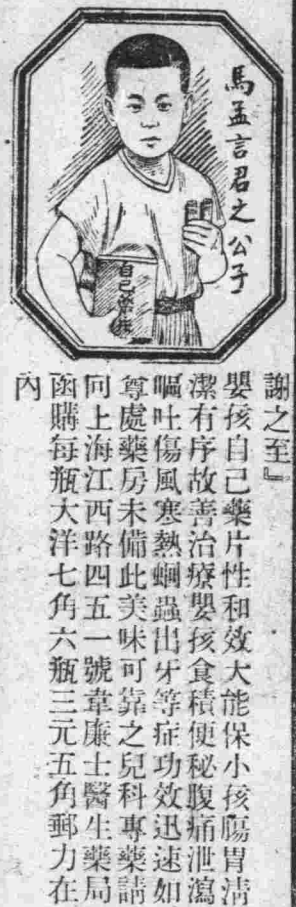 馬孟言君之公子
自己藥片
謝之至』
嬰孩自己藥片性和效大能保小孩腸胃清
潔有序故善治療嬰孩食積便秘腹痛泄瀉
嘔吐傷風寒熱蛔蟲出牙等症功效迅速如
尊處藥房未備此美味可靠之兒科專藥請
向上海江西路四五一號韋廉士醫生藥局
函購每瓶大洋七角六瓶三元五角郵力在
內